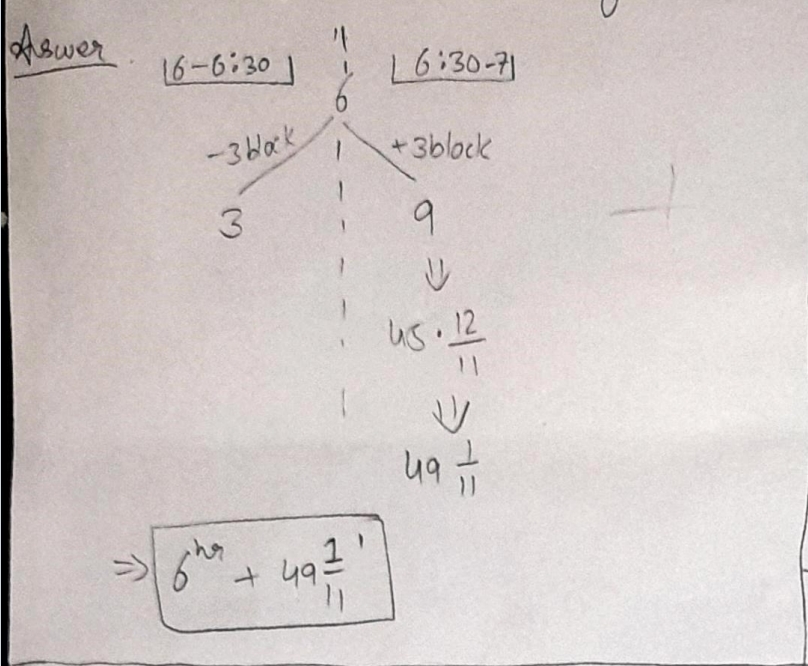 Aswer.
[6-6:30] [6:30-7]
6
-3 block +3 block
3 9
⇓
45 · 12/11
⇓
49 1/11
⇒ 6 hr + 49 1/11 '